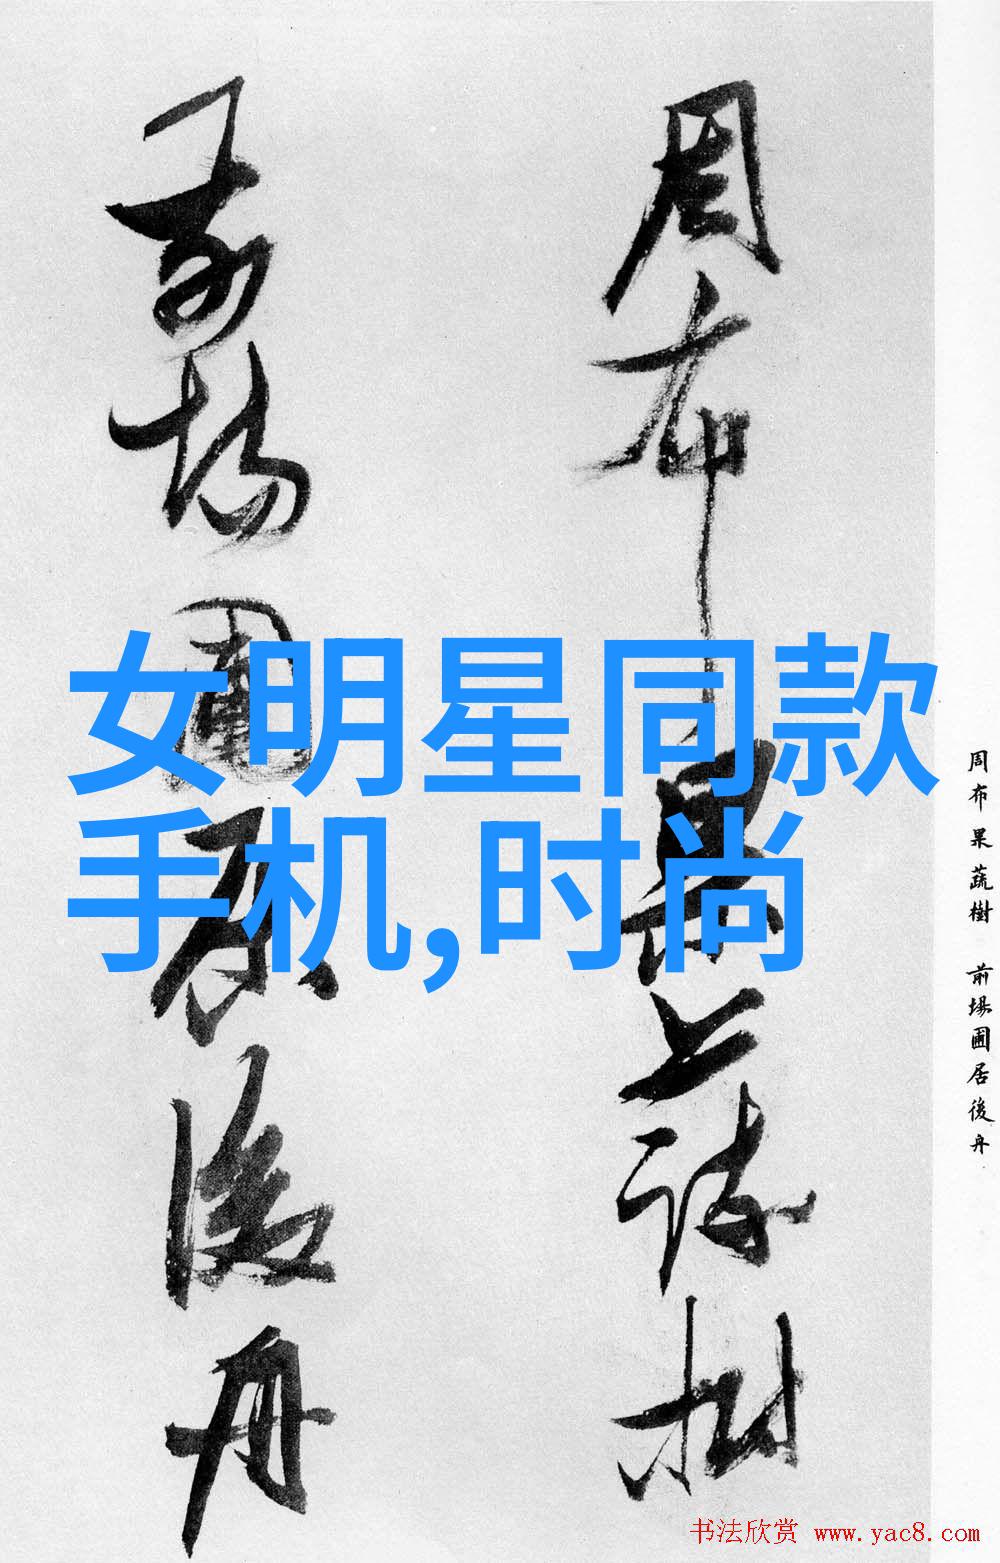 周布果蔬樹
前場圃居後舟
女明星同款
手机,时尚
周布果蔬樹 前場圃居後舟
书法欣赏 www.yac8.com